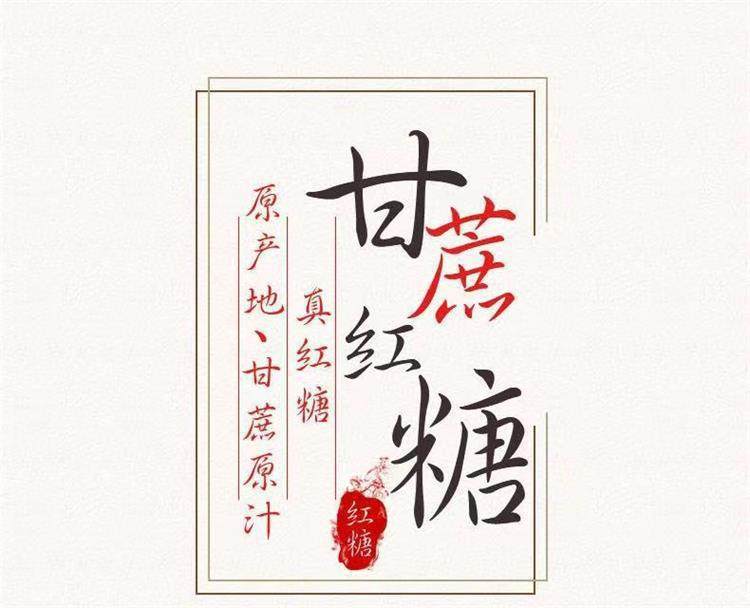 甘蔗红糖
真红糖
原产地、甘蔗原汁
红糖